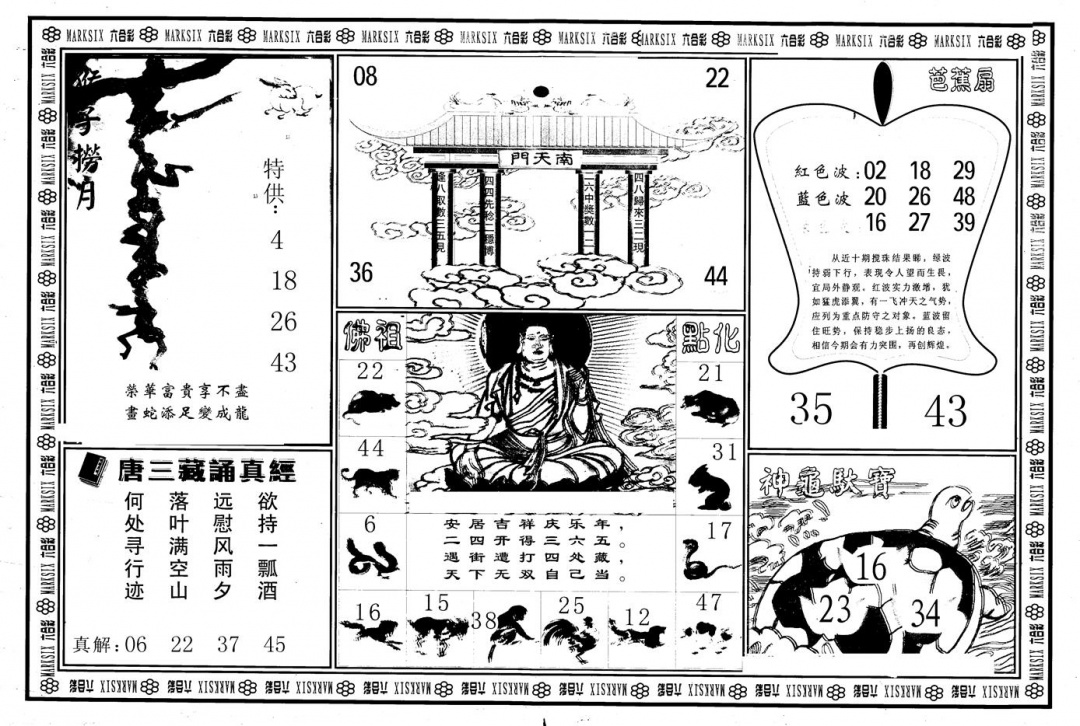 MARKSIX 六合彩 MARKSIX 六合彩 MARKSIX 六合彩 MARKSIX 六合彩 MARKSIX 六合彩 MARKSIX 六合彩 MARKSIX 六合彩 MARKSIX 六合彩 MARKSIX 六合彩 MARKSIX 六合彩
猴子撈月
特供:
4
18
26
43
榮華富貴享不盡
畫蛇添足變成龍
唐三藏誦真經
欲持一瓢酒
远慰风雨夕
落叶满空山
何处寻行迹
真解:06 22 37 45
08 22
南天門
逢八取數三五見
四四先稔一穩博
二六中獎數一二
四八歸來三二現
36 44
佛祖 點化
22 21
44 31
6 17
安居吉祥庆乐年，
二四开得三六五。
遇街遭打四处藏，
天下无双自己当。
16 15 38 25 12 47
芭蕉扇
紅色波:02 18 29
藍色波 20 26 48
16 27 39
从近十期搅珠结果睇，绿波
持弱下行，表现令人望而生畏，
宜局外静观。红波实力激增，犹
如猛虎添翼，有一飞冲天之气势，
应列为重点防守之对象。蓝波留
住旺势，保持稳步上扬的良态，
相信今期会有力突围，再创辉煌。
35 43
神龜馱寶
16
23 34